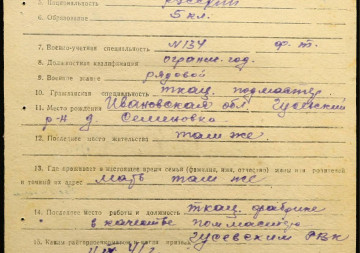 5. Национальность русский
6. Образование 5 кл.
7. Военно-учетная специальность №134 ф. т.
8. Должностная квалификация огранич. год.
9. Военное звание рядовой
10. Гражданская специальность ткац. подмастер
11. Место рождения Ивановская обл. Гусевский
р-н д Семеновка
12. Последнее место жительства там же
13. Где проживает в настоящее время семья (фамилия, имя, отчество) жены или родителей
и точный их адрес мать там же
14. Последнее место работы и должность ткац. фабрике
в качестве
15. Каким райгорвоенкоматом и когда Гусевским РВК